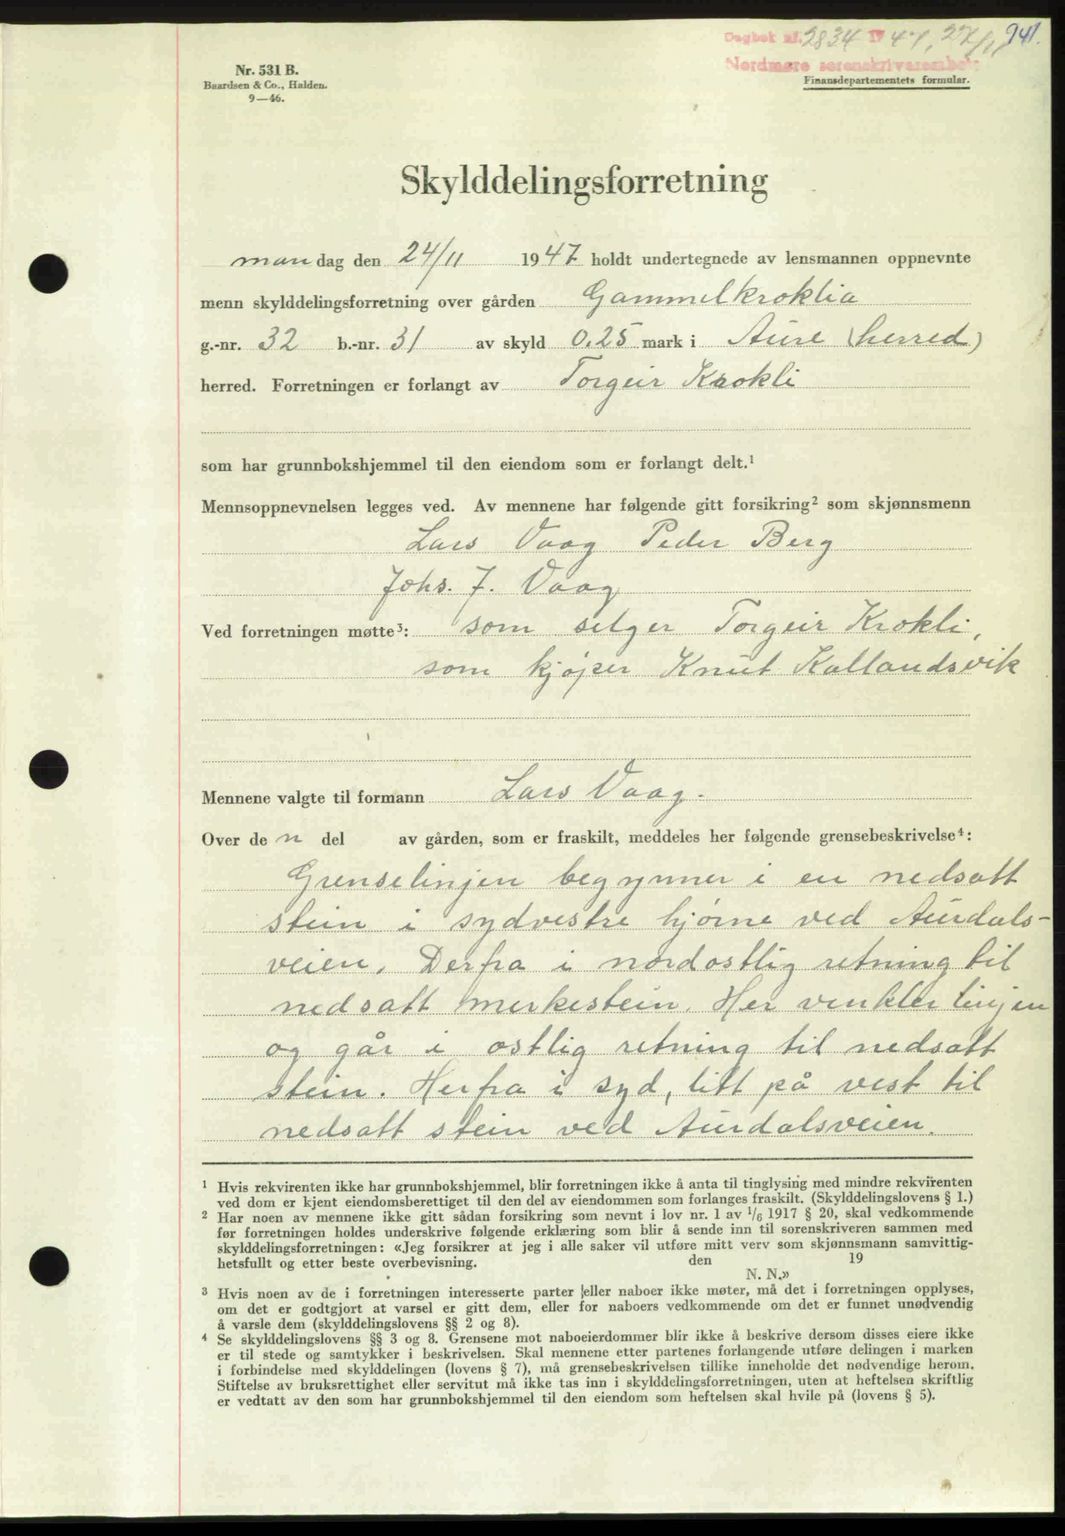 Dagbok nr. 2834 1947, 27/11 941.
Nordmøre sorenskriverembete
Nr. 531 B.
Baardsen & Co., Halden.
9—46.
Finansdepartementets formular.
Skylddelingsforretning
mandag den 24/11 1947 holdt undertegnede av lensmannen oppnevnte
menn skylddelingsforretning over gården Gammelkroklia
g.-nr. 32 b.-nr. 31 av skyld 0.25 mark i Aure (herred)
herred. Forretningen er forlangt av Torgeir Krokli
som har grunnbokshjemmel til den eiendom som er forlangt delt.¹
Mennsoppnevnelsen legges ved. Av mennene har følgende gitt forsikring² som skjønnsmenn
Lars Vaag Peder Berg
Johs. J. Vaag
Ved forretningen møtte³: som selger Torgeir Krokli,
som kjøper Knut Kallandsvik
Mennene valgte til formann Lars Vaag.
Over de n del av gården, som er fraskilt, meddeles her følgende grensebeskrivelse⁴:
Grenselinjen begynner i en nedsatt
stein i sydvestre hjørne ved Aurdals-
veien. Derfra i nordostlig retning til
nedsatt merkestein. Her vinkler linjen
og går i ostlig retning til nedsatt
stein. Herfra i syd, litt på vest til
nedsatt stein ved Aurdalsveien.
¹ Hvis rekvirenten ikke har grunnbokshjemmel, blir forretningen ikke å anta til tinglysing med mindre rekvirenten
ved dom er kjent eiendomsberettiget til den del av eiendommen som forlanges fraskilt. (Skylddelingslovens § 1.)
² Har noen av mennene ikke gitt sådan forsikring som nevnt i lov nr. 1 av 1/6 1917 § 20, skal vedkommende
før forretningen holdes underskrive følgende erklæring som blir å sende inn til sorenskriveren sammen med
skylddelingsforretningen: «Jeg forsikrer at jeg i alle saker vil utføre mitt verv som skjønnsmann samvittig-
hetsfullt og etter beste overbevisning. den 19
N. N.»
³ Hvis noen av de i forretningen interesserte parter eller naboer ikke møter, må det i forretningen opplyses,
om det er godtgjort at varsel er gitt dem, eller for naboers vedkommende om det er funnet unødvendig
å varsle dem (skylddelingslovens §§ 2 og 8).
⁴ Se skylddelingslovens §§ 3 og 8. Grensene mot naboeierdommer blir ikke å beskrive dersom disses eiere ikke
er til stede og samtykker i beskrivelsen. Skal mennene etter partenes forlangende utføre delingen i marken
i forbindelse med skylddelingen (lovens § 7), må grensebeskrivelsen tillike inneholde det nødvendige herom.
Stiftelse av bruksrettighet eller servitut må ikke tas inn i skylddelingsforretningen, uten at heftelsen skriftlig
er vedtatt av den som har grunnbokshjemmel til den eiendom som heftelsen skal hvile på (lovens § 5).